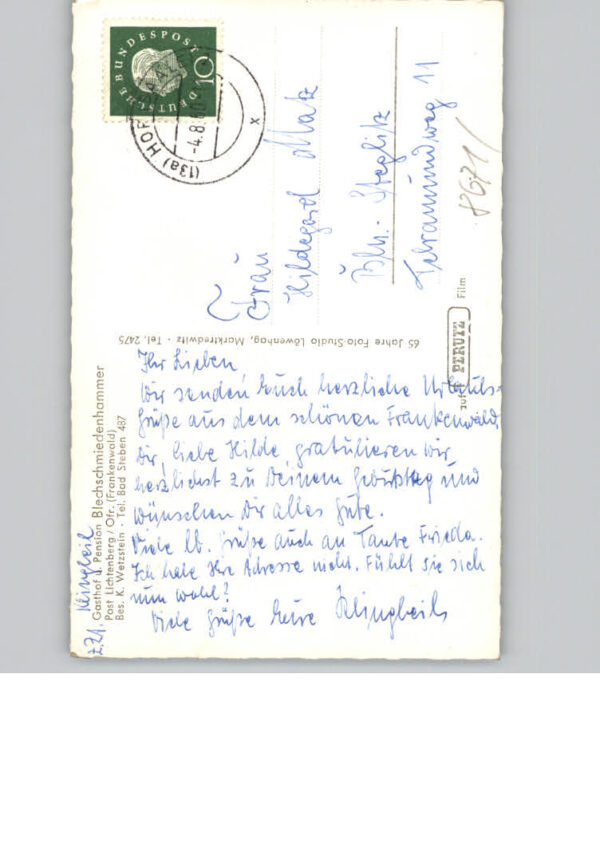 Klingbeil
z. Zt.
Gasthof u. Pension Blechschmiedenhammer
Post Lichtenberg / Ofr. (Frankenwald)
Bes. K. Wetzstein · Tel. Bad Steben 487
Ihr Lieben,
Wir senden Euch herzliche Urlaubs-
grüße aus dem schönen Frankenwald.
Dir, liebe Hilde, gratulieren wir
herzlichst zu Deinem Geburtstag und
wünschen Dir alles Gute.
Viele lb. Grüße auch an Tante Frieda.
Ich habe Ihre Adresse nicht. Fühlt sie sich
nun wohl?
Viele Grüße Eure Klingbeils
65 Jahre Foto-Studio Löwenhag, Marktredwitz · Tel. 2475
auf PERUTZ Film
DEUTSCHE BUNDESPOST
10
(13a) HOF
-4.8.60
x
Frau
Hildegard Matz
Bln.-Steglitz
Telramundweg 11
8671